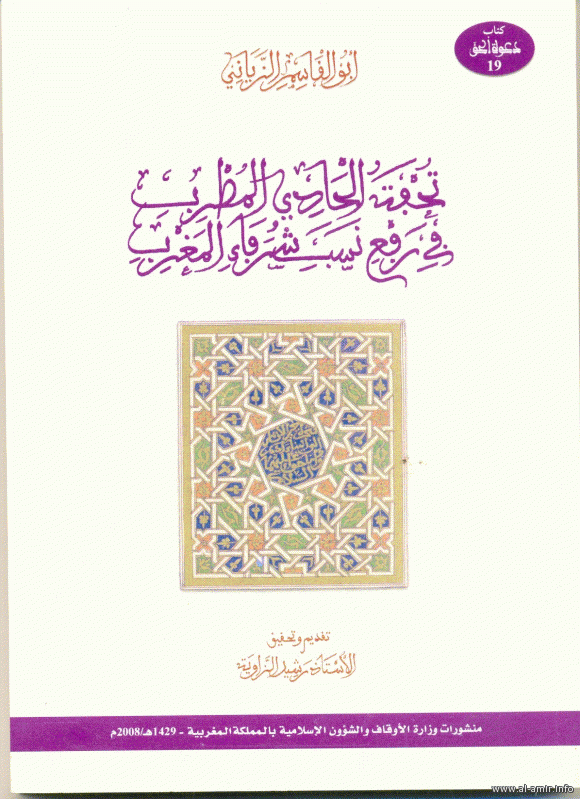 كتاب
دعوة الحق
19
أبو القاسم الزياني
تحفة الحادي المطرب
في رفع نسب شرفاء المغرب
تقديم وتحقيق
الأستاذ رشيد الزاوية
منشورات وزارة الأوقاف والشؤون الإسلامية بالمملكة المغربية - 1429هـ/2008م
www.al-amir.info